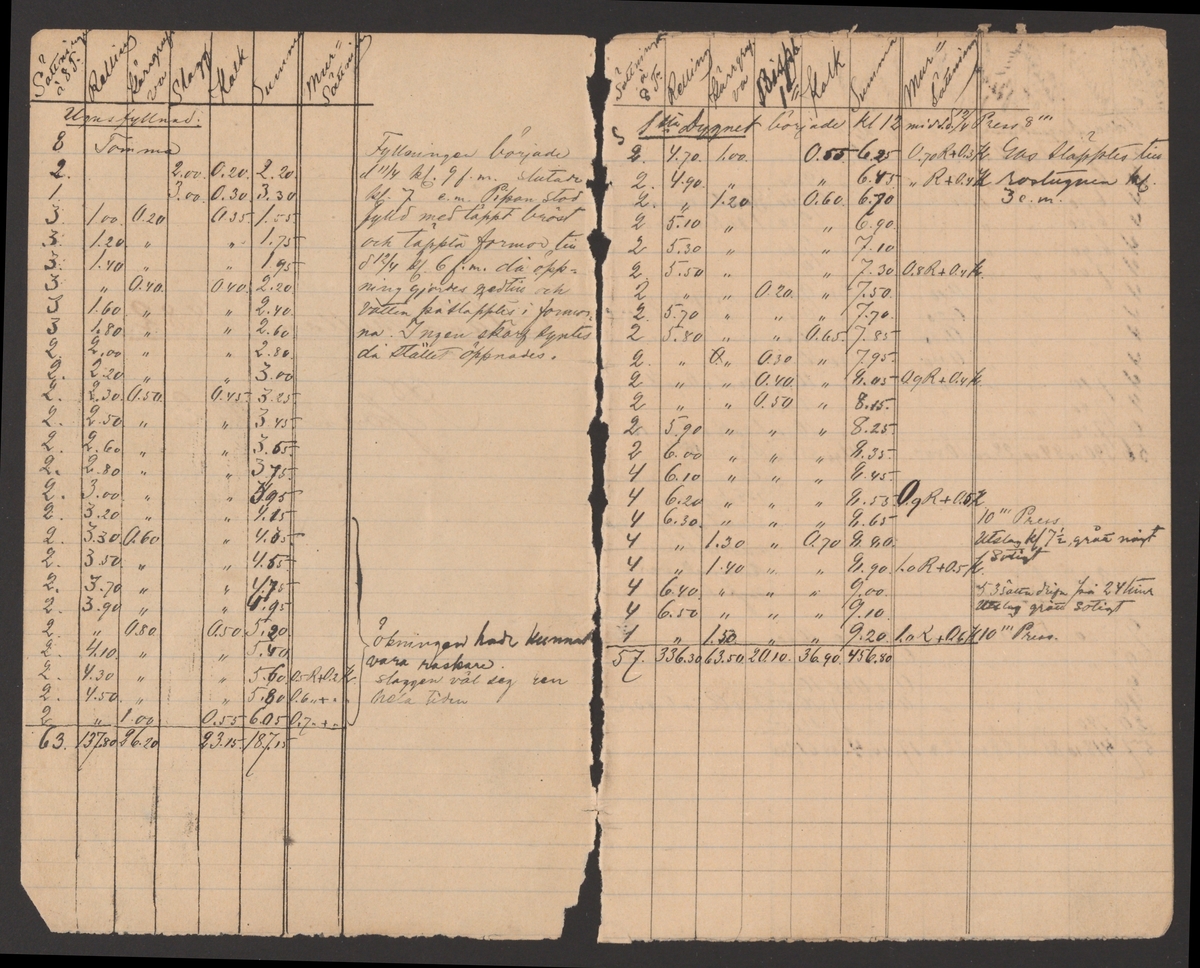 Sättningar à 8 T. Kalk Summa Mur= Sättning
Ugnsfyllnad.
8 Tomma
2. 2.00 0.20 2.20
1. 3.00 0.30 3.30
3. 1.00 0.20 0.35 1.55
3. 1.20 " " 1.75
3. 1.40 " " 1.95
3 " 0.40 0.40 2.20
3 1.60 " " 2.40
3 1.80 " " 2.60
2 2.00 " " 2.80
2. 2.20 " " 3.00
2. 2.30 0.50 0.45 3.25
2. 2.50 " " 3.45
2. 2.60 " " 3.55
2. 2.80 " " 3.75
2. 3.00 " " 3.95
2 3.20 " " 4.15
2. 3.30 0.60 " 4.35
2. 3.50 " " 4.55
2. 3.70 " " 4.75
2. 3.90 " " 4.95
2. " 0.80 0.50 5.20
2. 4.10 " " 5.40
2. 4.30 " " 5.60 0.5 R+0.2 K
2 4.50 " " 5.80 0.6 " + "
2 " 1.00 0.55 6.05 0.7 " + "
63. 137.80 26.20 23.15 187.15
Fyllningen började
d 11/4 kl. 9 f.m. slutade
kl. 7 e.m. Pipan stod
fylld med täppt bröst
och täppta formor till
d 12/4 kl. 6 f.m. då öpp=
ning gjordes nedtill och
vatten påsläpptes i formor
na. Ingen skarf syntes
då stället öppnades.
Ökningen hade kunnat
vara raskare.
slaggen väl seg ren
hela tiden
Sättningar à 8 T. Kalk Summa Mur= Sättning
1sta Dygnet började kl 12 midd. d 12/4 Press 8'''
2. 4.70 1.00 0.55 6.25 0.70 R+0.3 K. Gas släpptes till
2. 4.90 " " 6.45 " R+0.4 K rostugnen kl.
2. " 1.20 0.60 6.70 3 e.m.
2 5.10 " " 6.90
2 5.30 " " 7.10
2 5.50 " " 7.30 0.8 R+0.4 K.
2 " " 0.20 " 7.50
2 5.70 " " " 7.70
2 5.80 " " 0.65 7.85
2. " " 0.30 " 7.95
2 " " 0.40 " 8.05 0.9 R+0.4 K.
2 " " 0.50 " 8.15
2 5.90 " " " 8.25
2 6.00 " " " 8.35
4 6.10 " " " 8.45
4 6.20 " " " 8.55 0.9 R+0.5 K
4 6.30 " " " 8.65 10''' Press
4 " 1.30 " 0.70 8.80 Utslag kl 7 1/2 grått något
4 " 1.40 " " 8.90 1.0 R+0.5 K. Sotigt
4 6.40 " " " 9.00 på 24 tim
4 6.50 " " " 9.10 Utslag grått Sotigt
1 " 1.50 " " 9.20 1.0 R+0.6 K 10''' Press.
57. 336.30 63.50 20.10 36.90 456.80